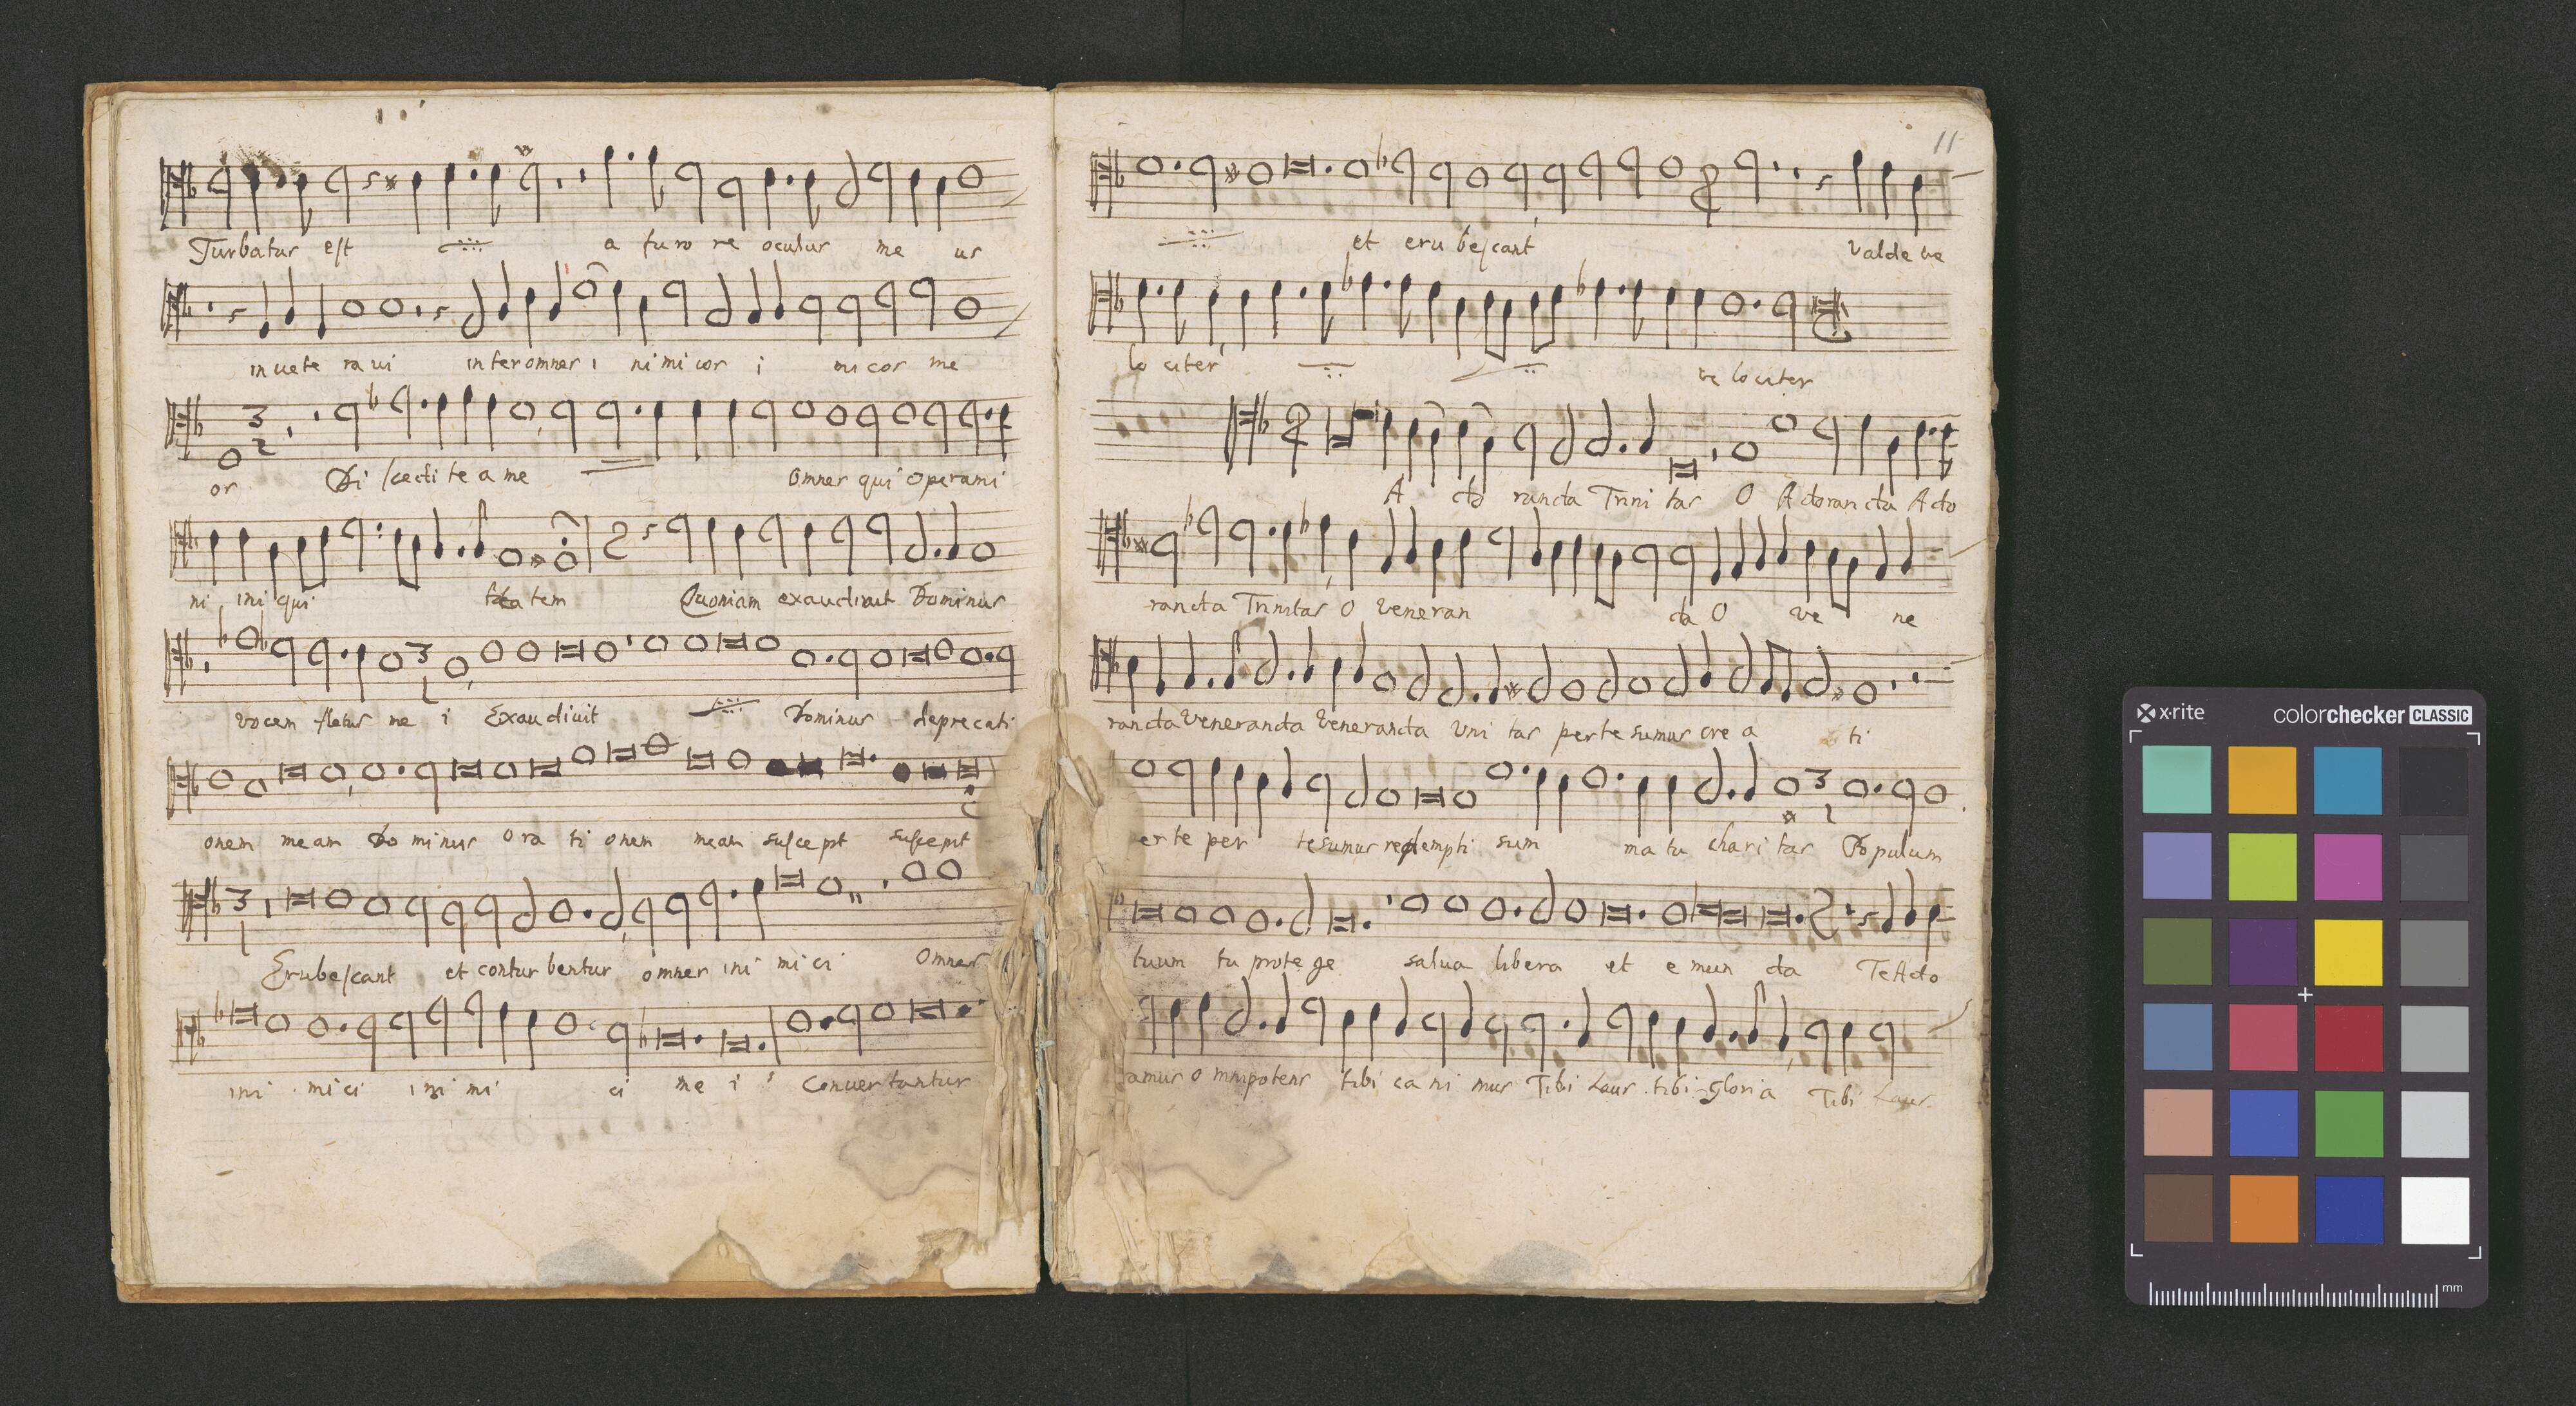 Turbatus est a furo re oculus me us
inuete raui inter omnes i nimicos i micos me
3 2
os Di scedite a me Omnes qui operami
ni, ini qui tatem Quoniam exaudiuit Dominus
3 1
vocem fletus me i Exaudiuit Dominus deprecati
onem meam Do minus ora ti onem meam suscepit suscepit
3 1
Erubescant et contur bentur omnes ini mi ci Omnes
ini mi ci ini mi ci me i Conuer tantur
11
et erubescant Valde ve
lo citer ve lociter
A do randa Trini tas O Adoranda Ado
randa Trinitas O veneran da O ve ne
randa Veneranda Veneranda Vni tas per te sumus cre a ti
3 1
er te per te sumus redempti sum ma tu chari tas Populum
tuum tu prote ge salua libera et e mun da Te Ado
amus o mnipotens tibi ca ni mus Tibi Laus tibi gloria Tibi Laus
x·rite colorchecker CLASSIC
mm